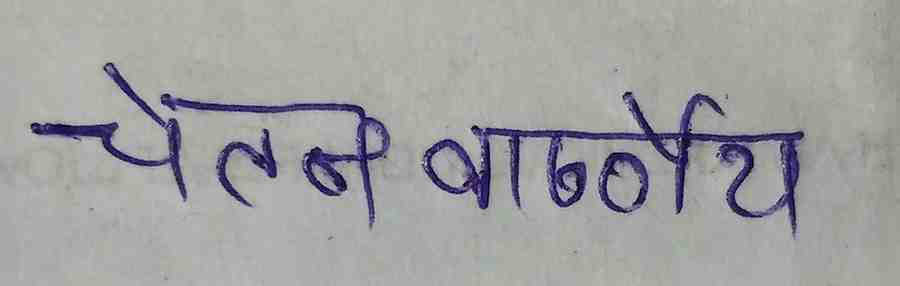 चेतन वार्ष्णेय